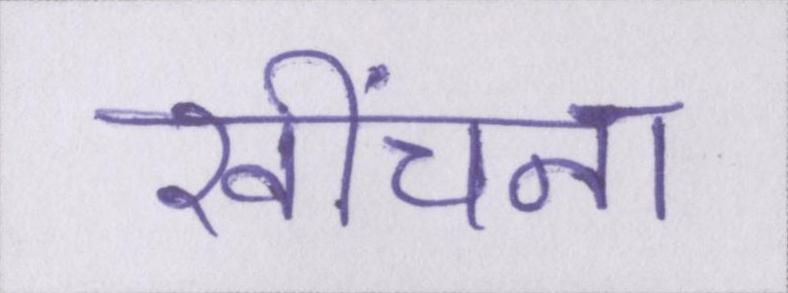 खींचना